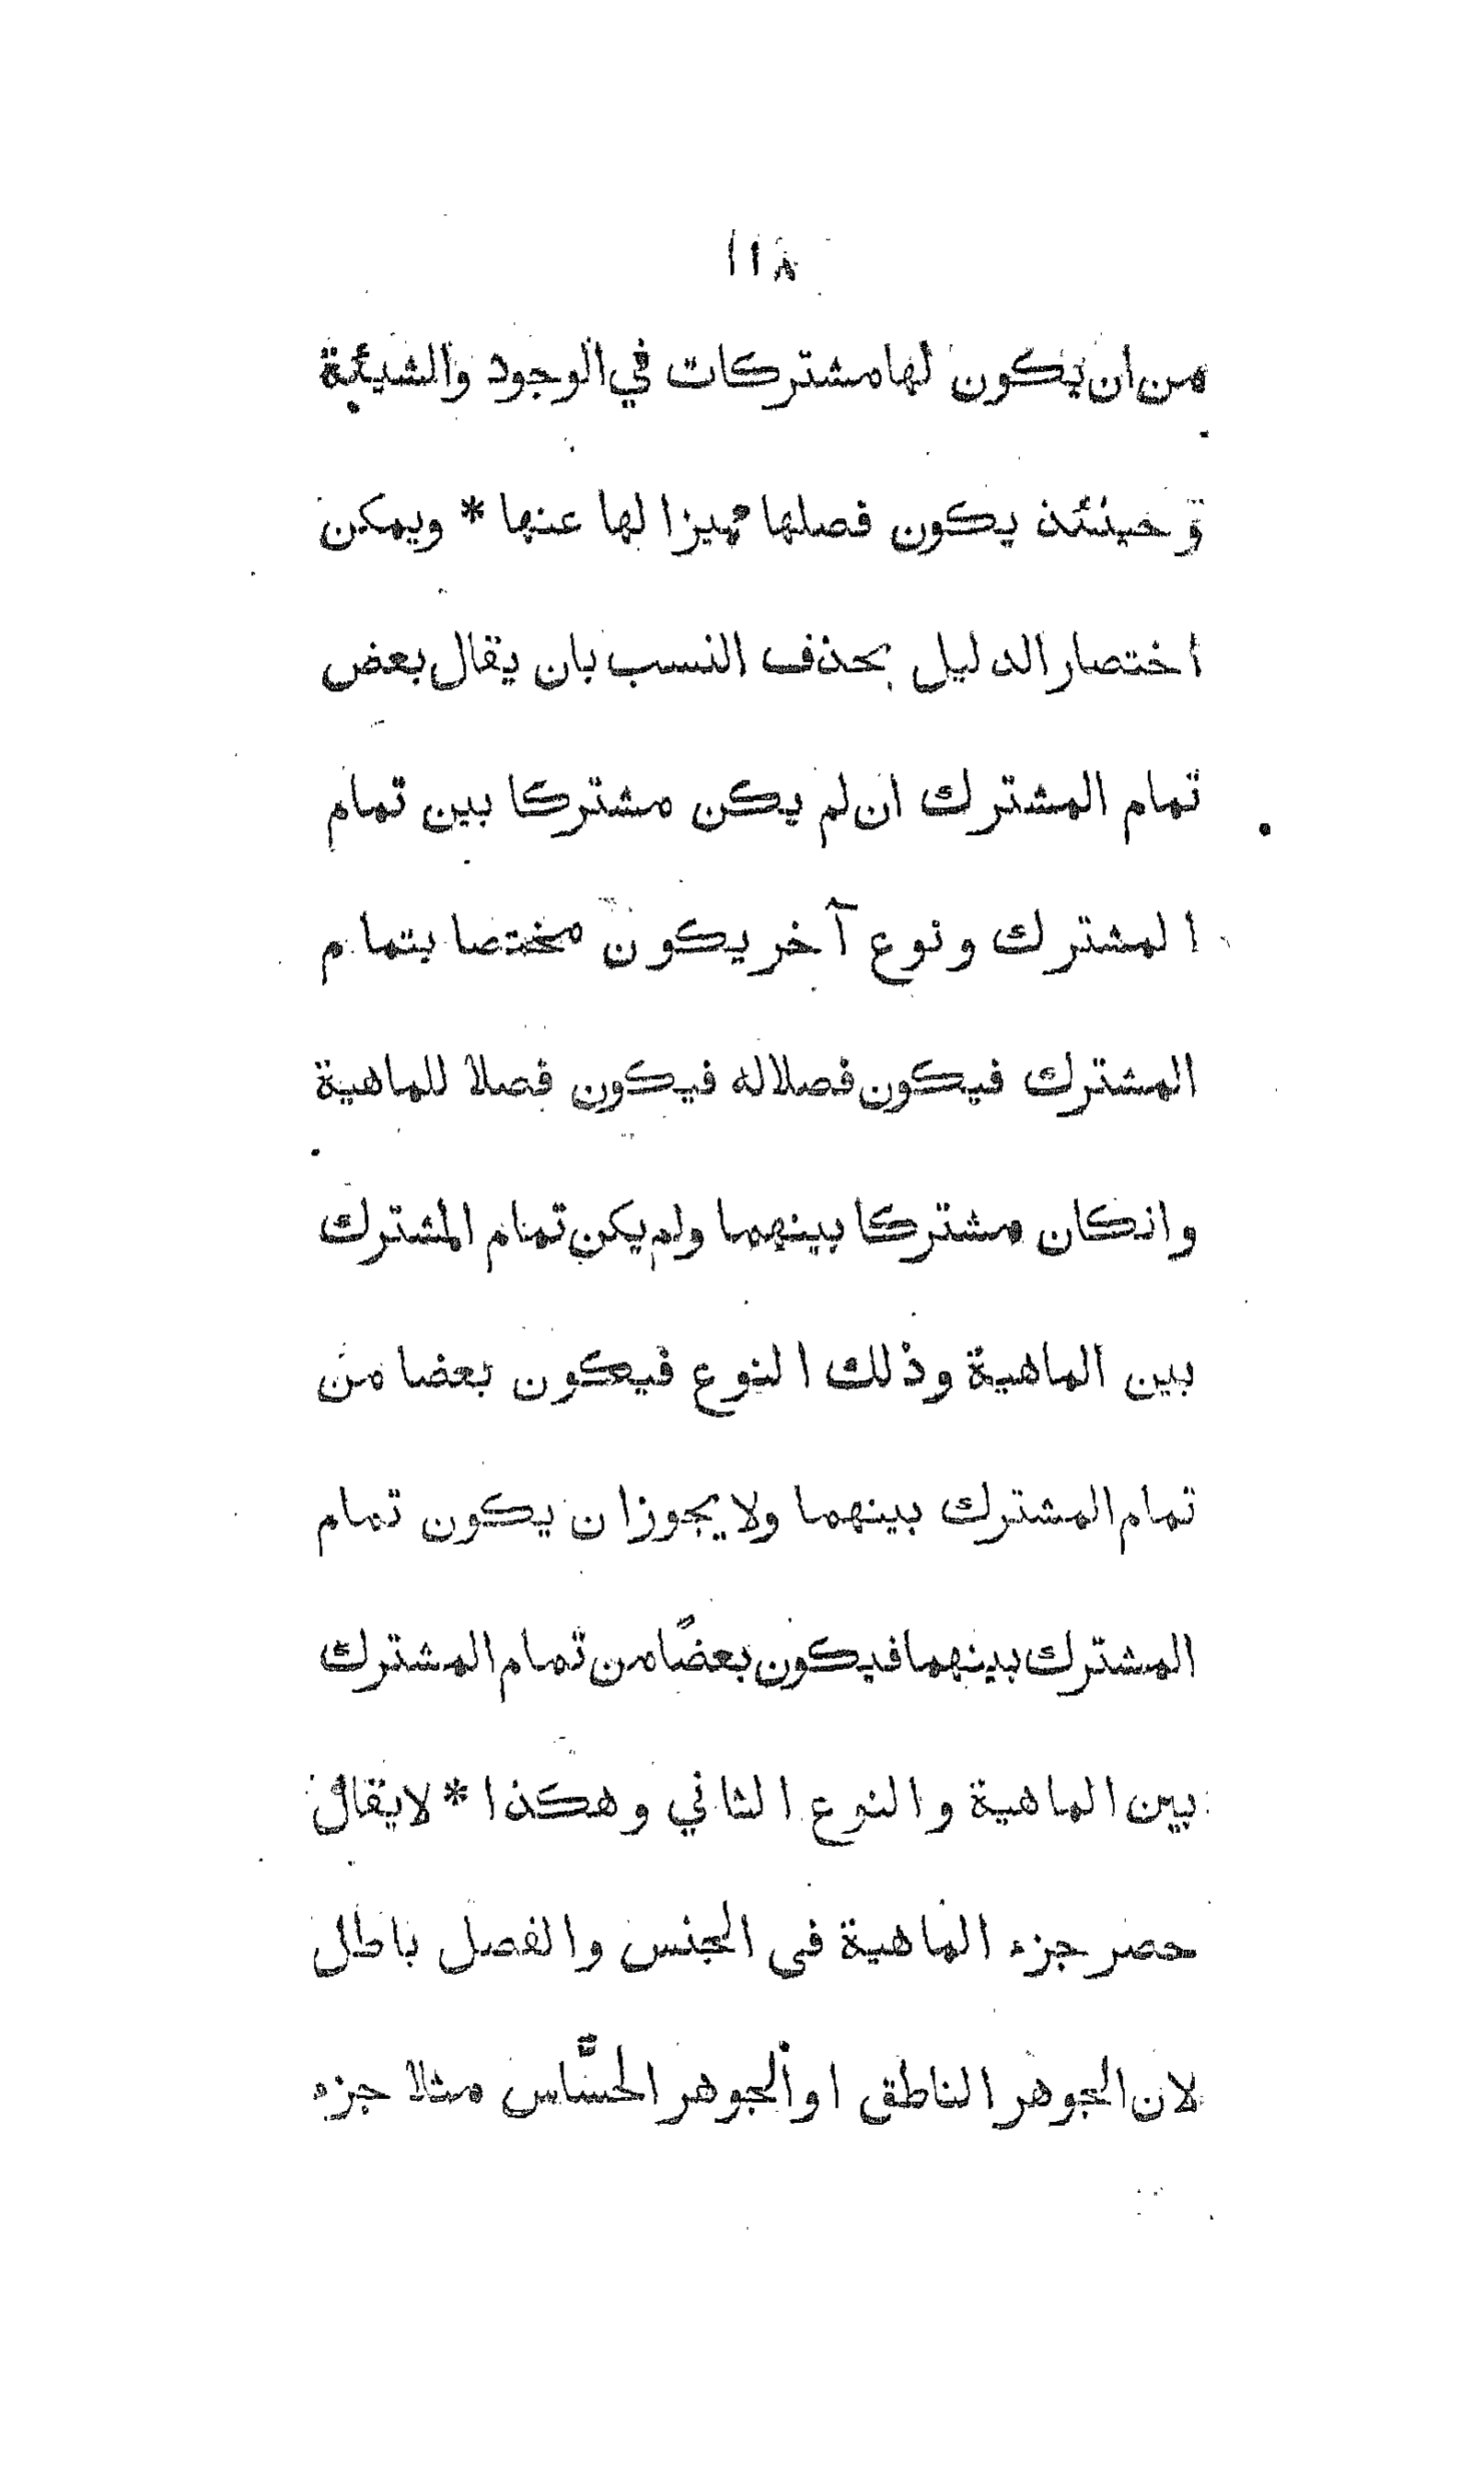 ١١٨
من ان يكون لها مشتركات في الوجود والشيئية
وحينئذ يكون فصلها مميزا لها عنها * ويمكن
اختصار الدليل بحذف النسب بان يقال بعض
تمام المشترك ان لم يكن مشتركا بين تمام
المشترك ونوع آخر يكون مختصا بتمام
المشترك فيكون فصلا له فيكون فصلا للماهية
وانكان مشتركا بينهما ولم يكن تمام المشترك
بين الماهية وذلك النوع فيكون بعضا من
تمام المشترك بينهما ولا يجوز ان يكون تمام
المشترك بينهما فيكون بعضًا من تمام المشترك
بين الماهية والنوع الثاني وهكذا * لا يقال
حصر جزء الماهية في الجنس والفصل باطل
لان الجوهر الناطق او الجوهر الحسّاس مثلا جزء